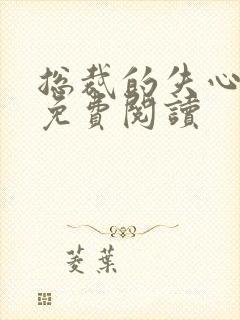 总裁的失心
免費閱讀
菱葉